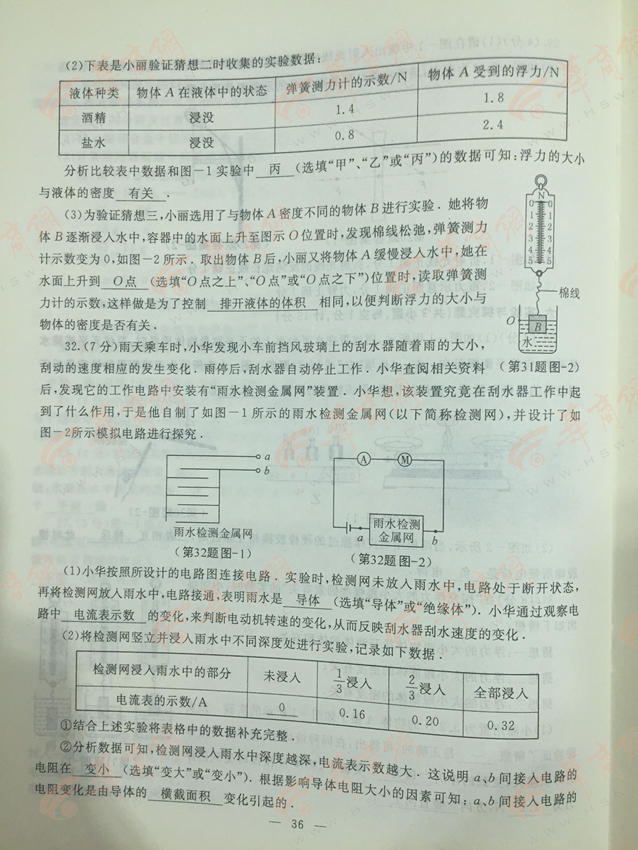 (2)下表是小丽验证猜想二时收集的实验数据:
液体种类 物体A在液体中的状态 弹簧测力计的示数/N 物体A受到的浮力/N
酒精 浸没 1.4 1.8
盐水 浸没 0.8 2.4
分析比较表中数据和图-1实验中 丙 (选填“甲”、“乙”或“丙”)的数据可知:浮力的大小
与液体的密度 有关 .
(3)为验证猜想三,小丽选用了与物体A密度不同的物体B进行实验.她将物
体B逐渐浸入水中,容器中的水面上升至图示O位置时,发现棉线松弛,弹簧测力
计示数变为0,如图-2所示.取出物体B后,小丽又将物体A缓慢浸入水中,她在
水面上升到 O点 (选填“O点之上”、“O点”或“O点之下”)位置时,读取弹簧测
力计的示数,这样做是为了控制 排开液体的体积 相同,以便判断浮力的大小与
物体的密度是否有关.
N
0 0
1 1
2 2
3 3
4 4
5 5
棉线
O
B
水
(第31题图-2)
32.(7分)雨天乘车时,小华发现小车前挡风玻璃上的刮水器随着雨的大小,
刮动的速度相应的发生变化.雨停后,刮水器自动停止工作.小华查阅相关资料
后,发现它的工作电路中安装有“雨水检测金属网”装置.小华想,该装置究竟在刮水器工作中起
到了什么作用,于是他自制了如图-1所示的雨水检测金属网(以下简称检测网),并设计了如
图-2所示模拟电路进行探究.
a
b
雨水检测金属网
(第32题图-1)
A M
雨水检测
金属网
a b
(第32题图-2)
(1)小华按照所设计的电路图连接电路.实验时,检测网未放入雨水中,电路处于断开状态,
再将检测网放入雨水中,电路接通,表明雨水是 导体 (选填“导体”或“绝缘体”).小华通过观察电
路中 电流表示数 的变化,来判断电动机转速的变化,从而反映刮水器刮水速度的变化.
(2)将检测网竖立并浸入雨水中不同深度处进行实验,记录如下数据.
检测网浸入雨水中的部分 未浸入 1/3浸入 2/3浸入 全部浸入
电流表的示数/A 0 0.16 0.20 0.32
①结合上述实验将表格中的数据补充完整.
②分析数据可知,检测网浸入雨水中深度越深,电流表示数越大.这说明a、b间接入电路的
电阻在 变小 (选填“变大”或“变小”).根据影响导体电阻大小的因素可知:a、b间接入电路的
电阻变化是由导体的 横截面积 变化引起的.
— 36 —